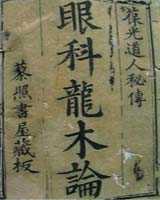 葆光道人秘傳
眼科龍木論
蔡照書屋藏板